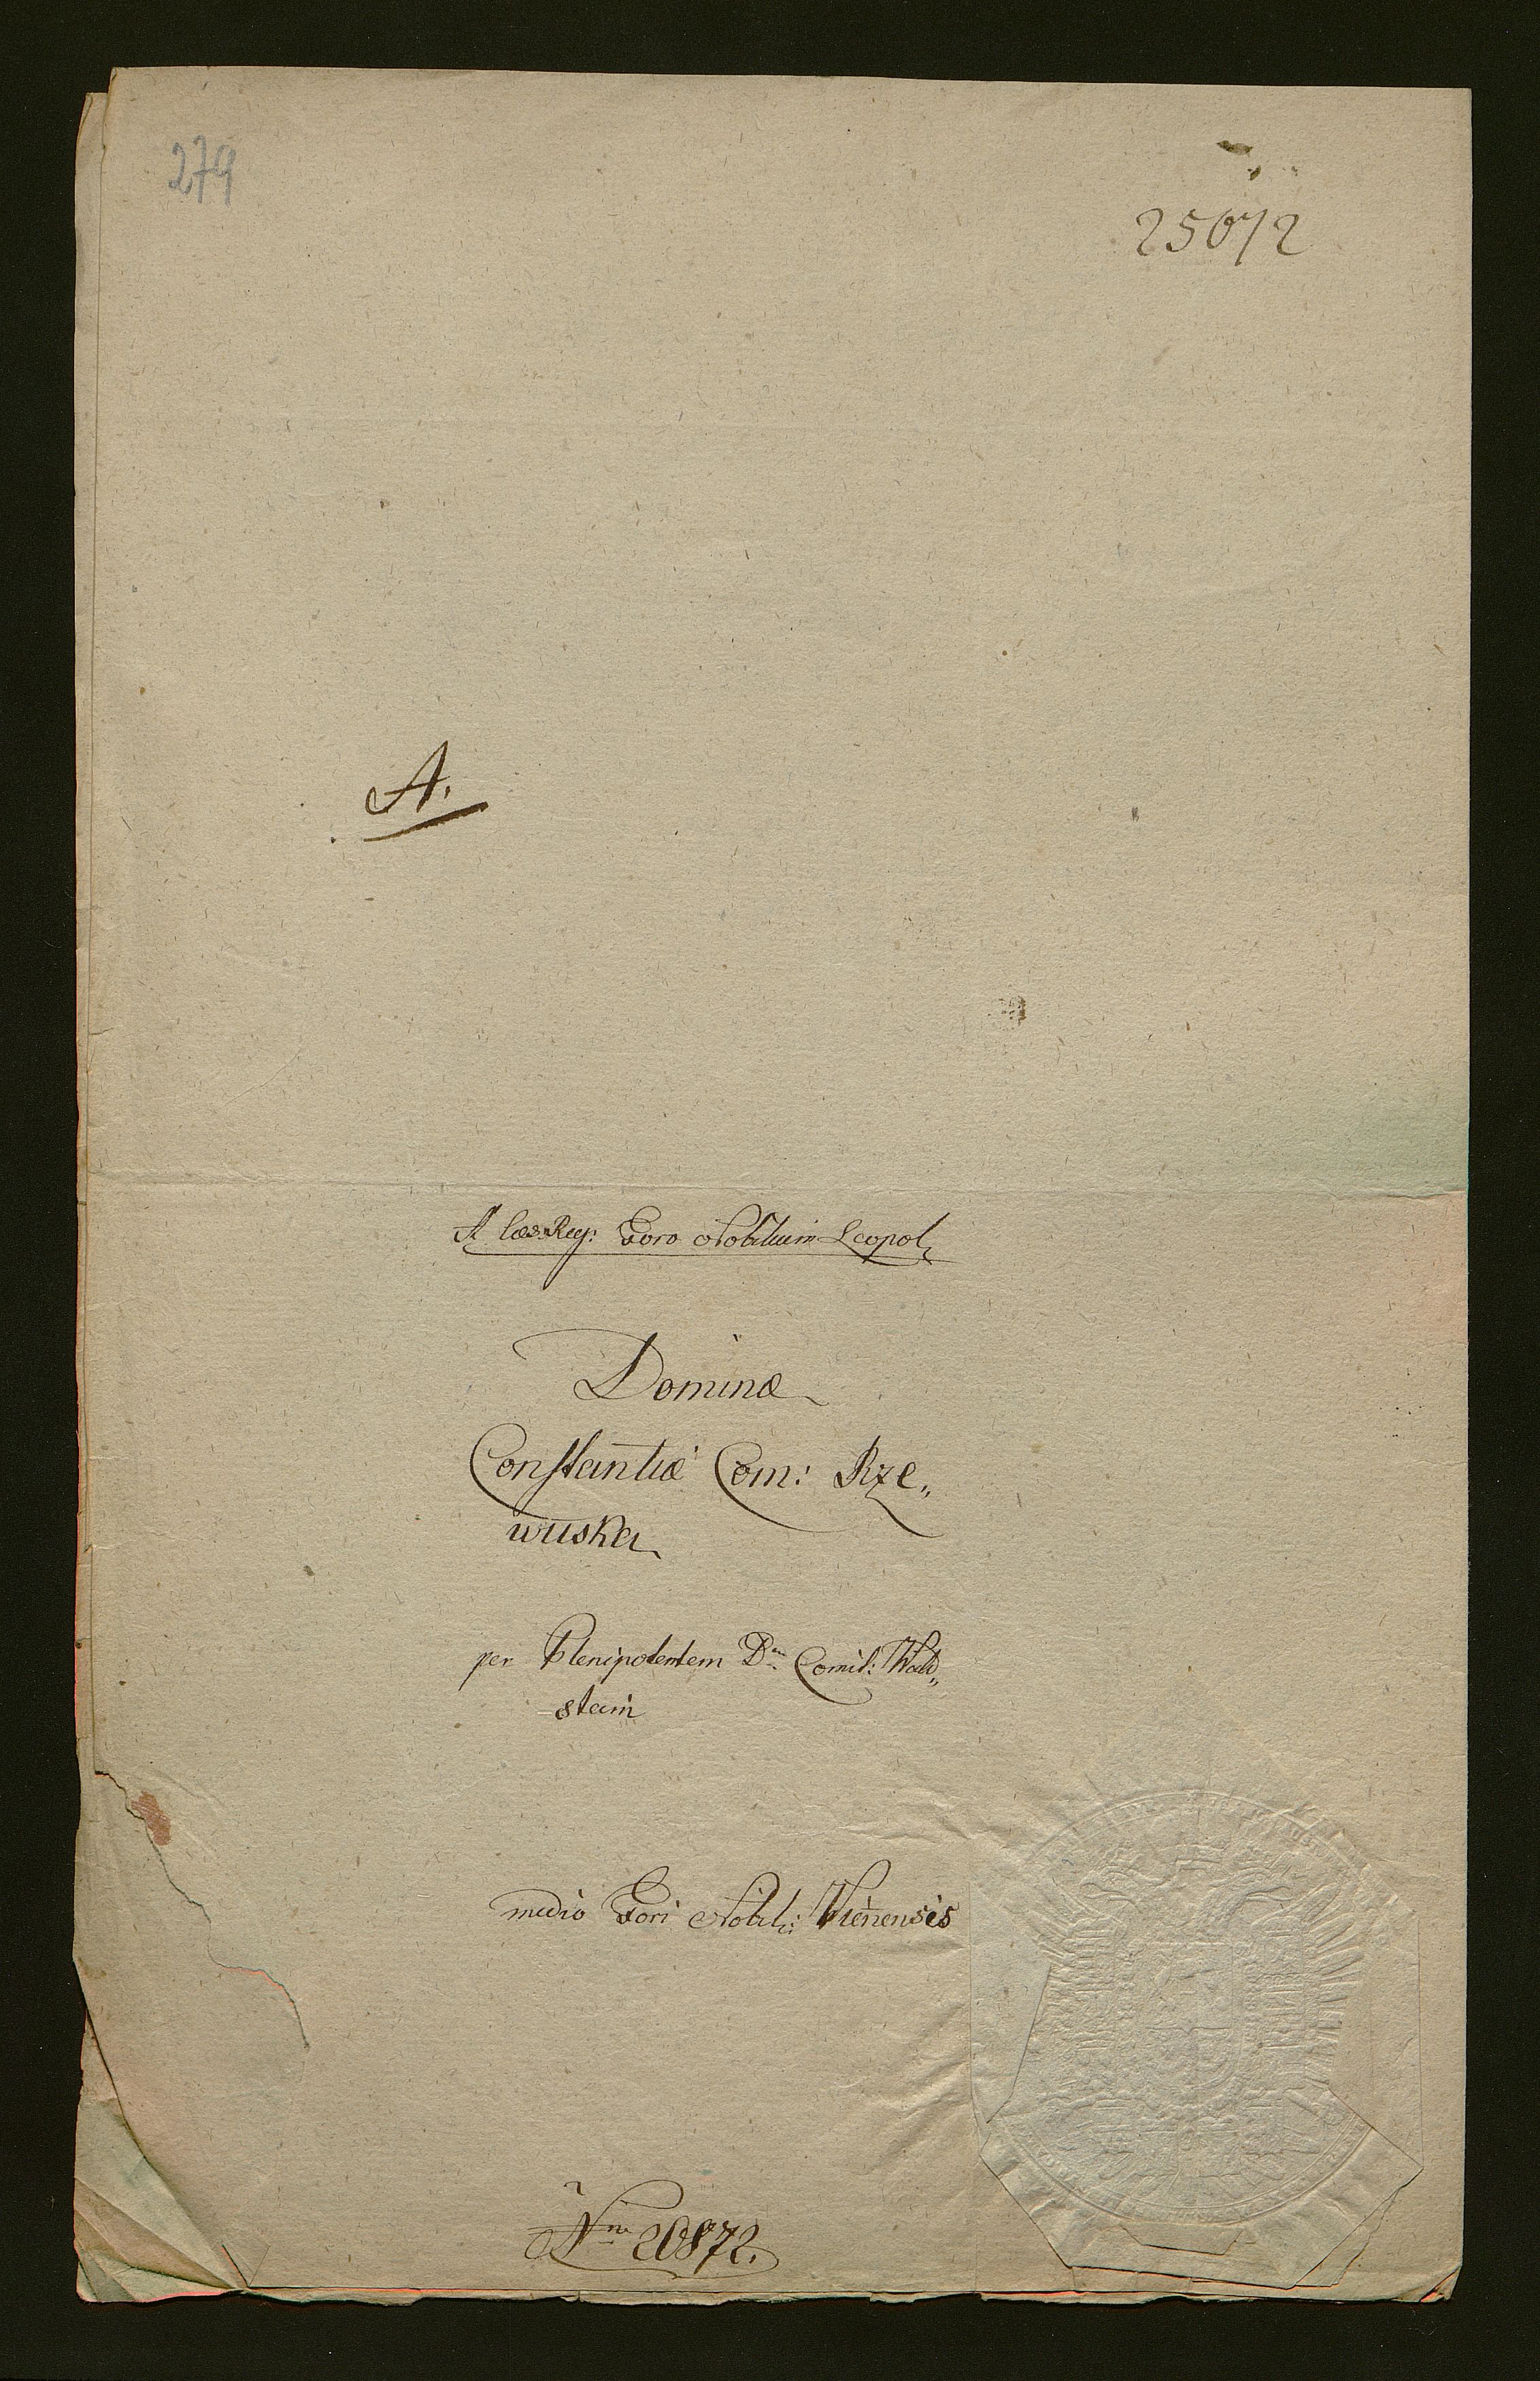 279
25072
A.
A Caes: Reg: Foro Nobilium Leopol„
Dominæ
Constantiæ Com: Rze„
wuska
per Plenipotentem Dnm Comit: Wald„
stein
medio Fori Nobil: Vieñensis
Nro 20872.